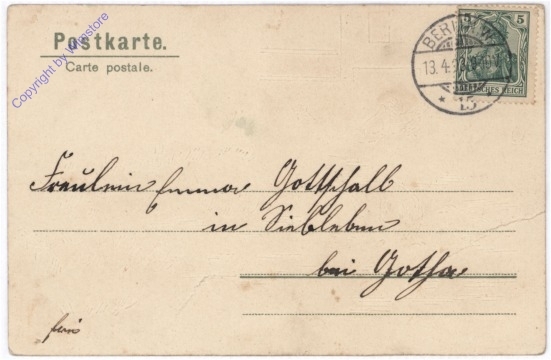 Postkarte.
Carte postale.
Copyright by Winstore
5 5
BERLIN W.
13.4.
DEUTSCHES REICH
* 15
Fräulein Emma Gottschall
in Siebleben
bei Gotha